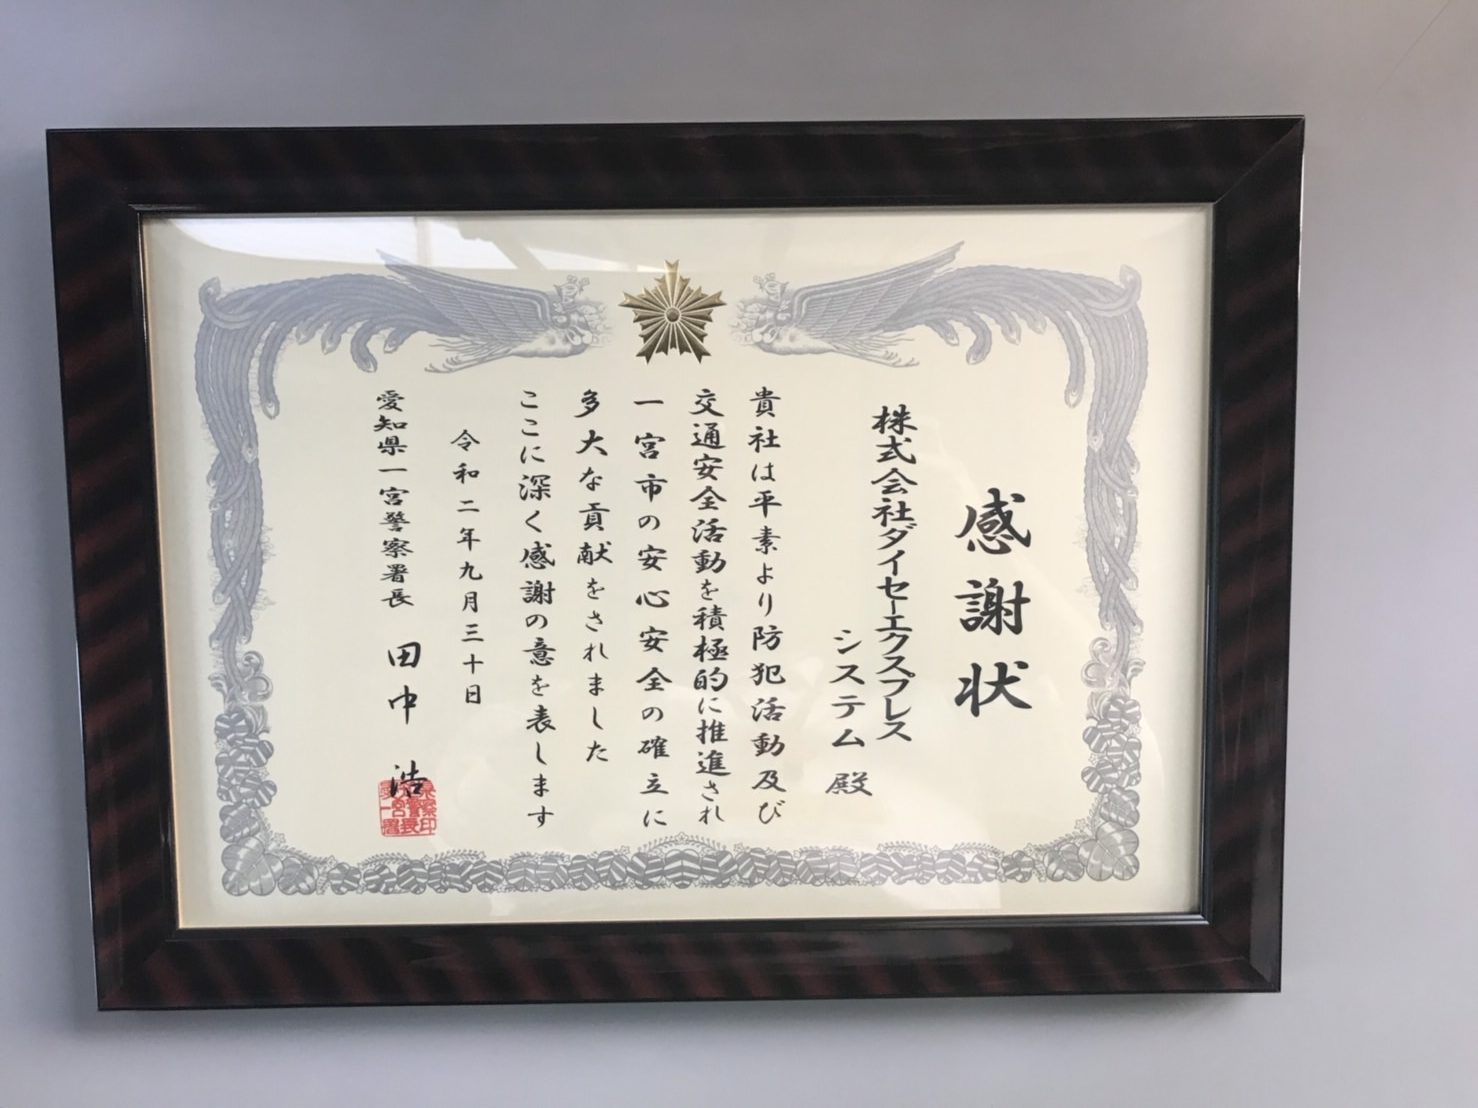 感謝状
株式会社ダイセーエクスプレス
システム 殿
貴社は平素より防犯活動及び
交通安全活動を積極的に推進され
一宮市の安心安全の確立に
多大な貢献をされました
ここに深く感謝の意を表します
令和二年九月三十日
愛知県一宮警察署長 田中 浩